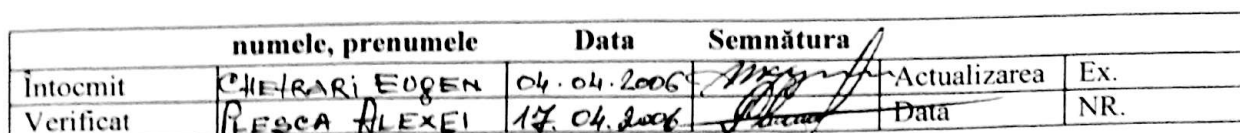 numele, prenumele Data Semnătura
Întocmit CHETRARi EUgEN 04.04.2006 Actualizarea Ex.
Verificat PLESCA ALEXEI 17.04.2006 Data NR.